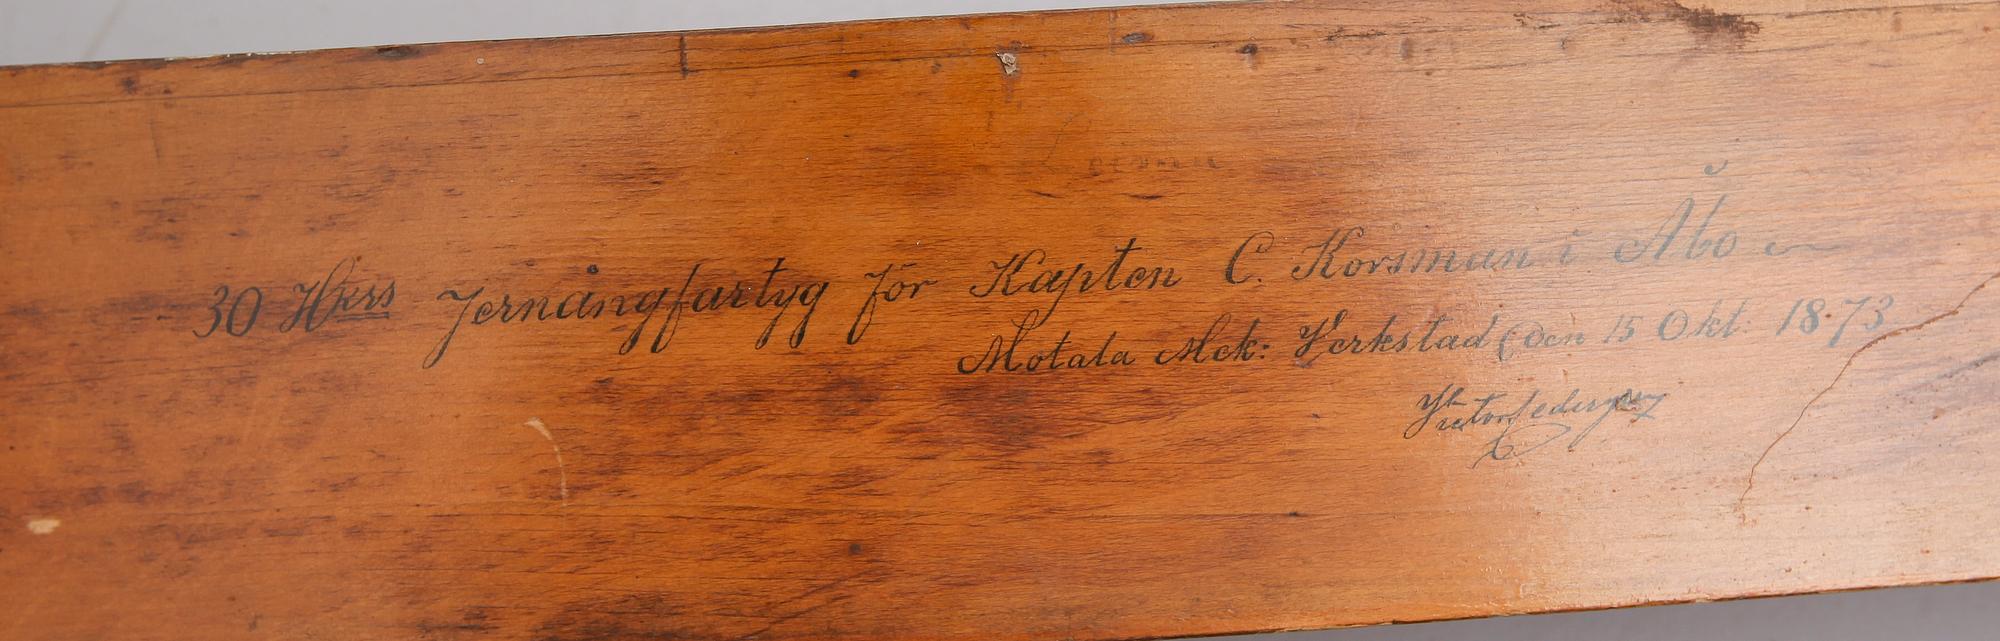 30 Hkrs Jernångfartyg för Kapten C. Korsman i Åbo
Motala Mek: Verkstad den 15 Okt. 1873
Victor